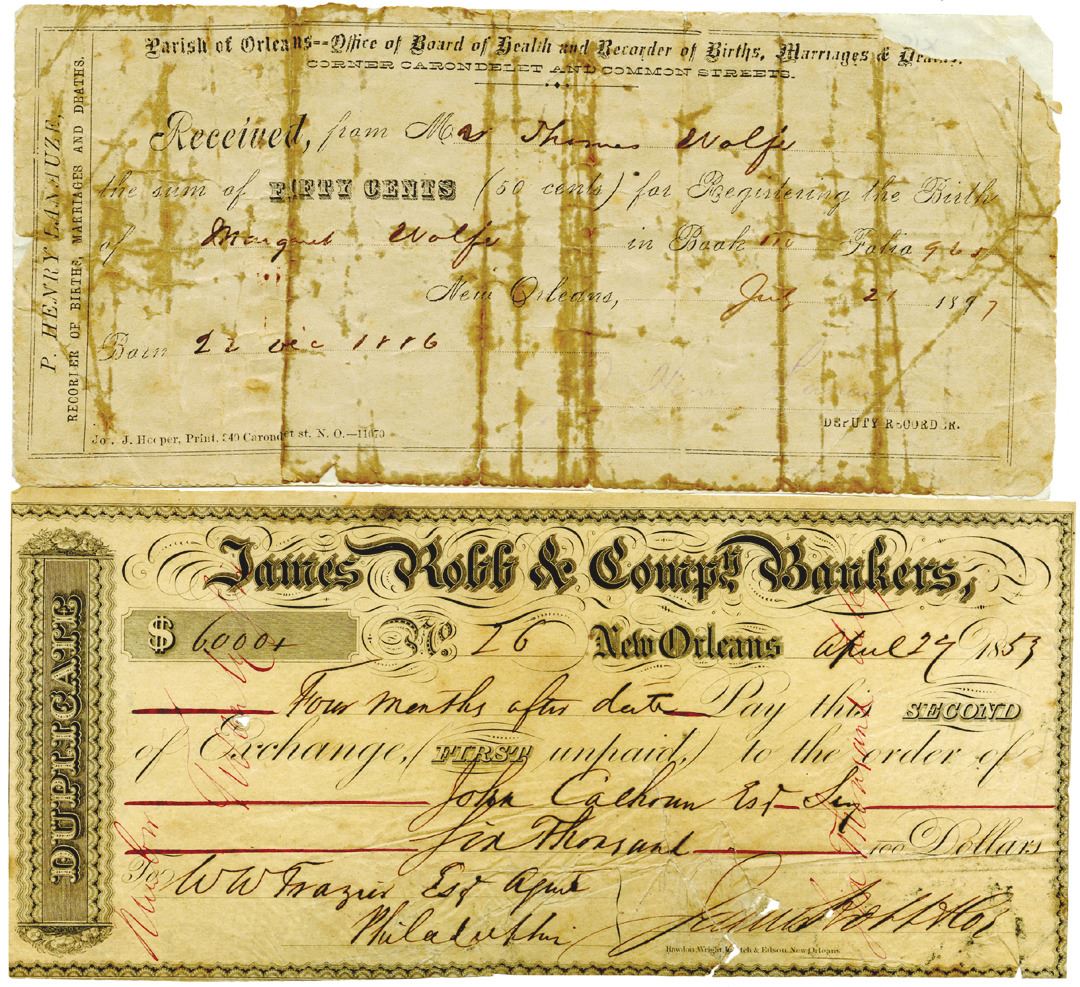 Parish of Orleans--Office of Board of Health and Recorder of Births, Marriages & Deaths.
CORNER CARONDELET AND COMMON STREETS.
P. HENRY LANAUZE,
RECORDER OF BIRTHS, MARRIAGES AND DEATHS.
Received, from Mr Thomas Wolfe
the sum of FIFTY CENTS (50 cents) for Registering the Birth
of Margret Wolfe in Book Folio
New Orleans, July 21 1897
Born 22 Dec 1886
DEPUTY RECORDER.
Jos. J. Hooper, Print. 340 Carondet st. N. O.—11070
DUPLICATE
James Robb & Compy. Bankers,
$ 6000 No. 26 New Orleans April 27 1853
Four months after date Pay this SECOND
of Exchange, (FIRST unpaid,) to the order of
John Calhoun Esq
Six Thousand /100 Dollars
To W W Frazier Esq Agent
Philadelphia James Robb & Co
Rawdon, Wright, Hatch & Edson, New Orleans.